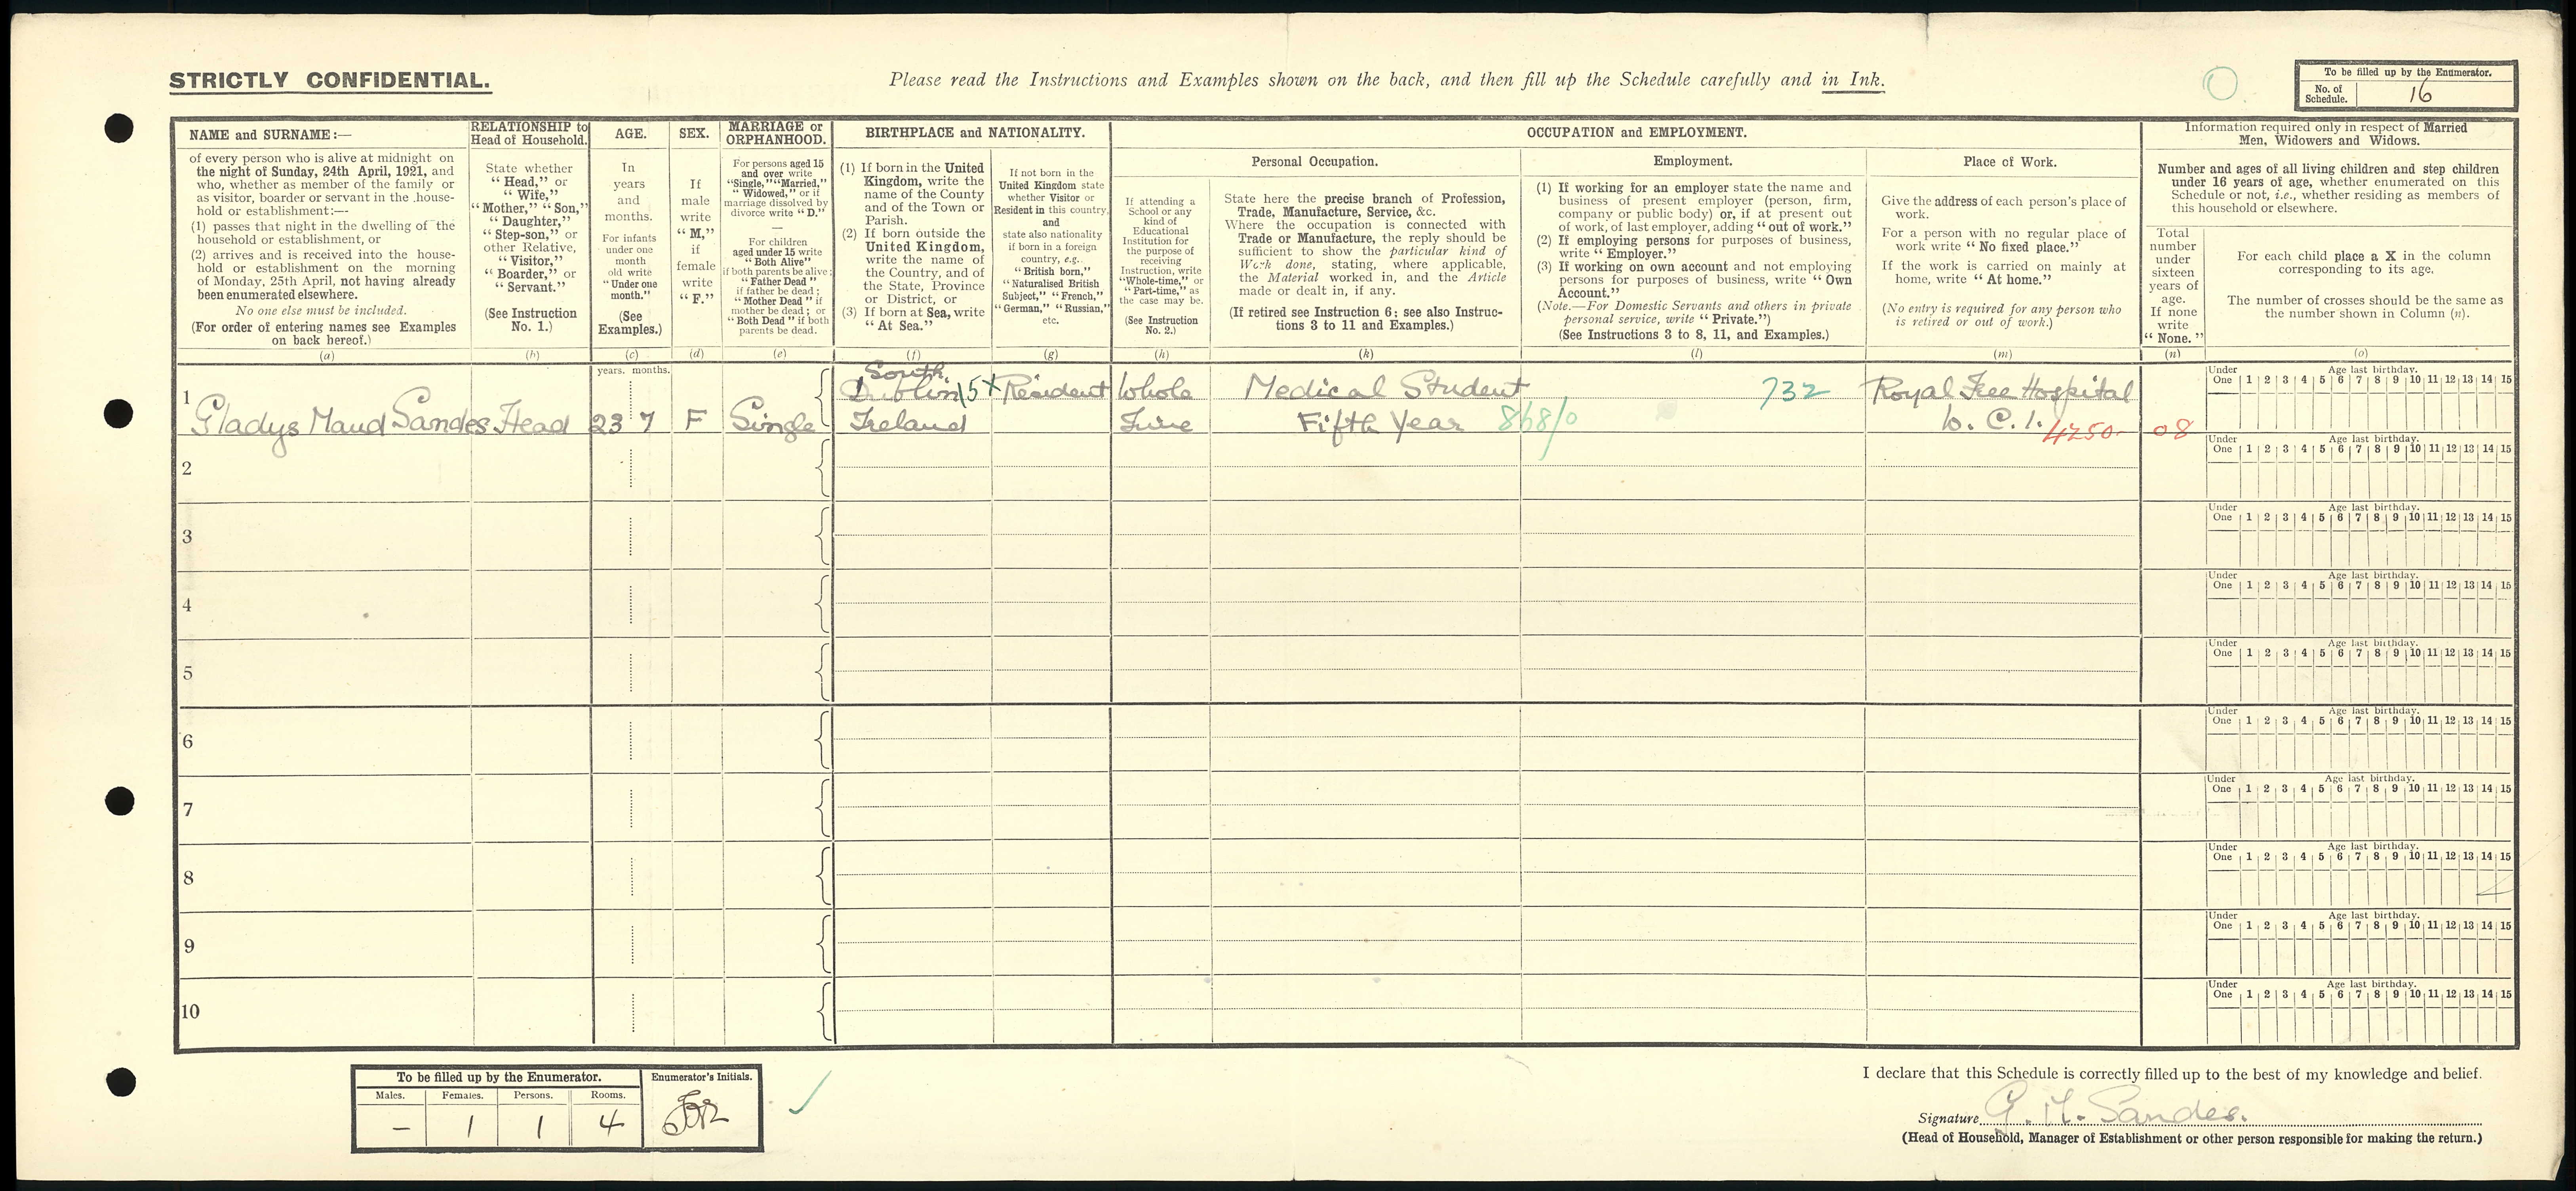 STRICTLY CONFIDENTIAL.
Please read the Instructions and Examples shown on the back, and then fill up the Schedule carefully and in Ink.
To be filled up by the Enumerator.
No. of Schedule. 16
NAME and SURNAME:—
of every person who is alive at midnight on
the night of Sunday, 24th April, 1921, and
who, whether as member of the family or
as visitor, boarder or servant in the house-
hold or establishment:—
(1) passes that night in the dwelling of the
household or establishment, or
(2) arrives and is received into the house-
hold or establishment on the morning
of Monday, 25th April, not having already
been enumerated elsewhere.
No one else must be included.
(For order of entering names see Examples
on back hereof.)
(a)
RELATIONSHIP to
Head of Household.
State whether
"Head," or
"Wife,"
"Mother," "Son,"
"Daughter,"
"Step-son," or
other Relative,
"Visitor,"
"Boarder," or
"Servant."
(See Instruction
No. 1.)
(b)
AGE.
In
years
and
months.
For infants
under one
month
old write
"Under one
month."
(See
Examples.)
(c)
SEX.
If
male
write
"M,"
if
female
write
"F."
(d)
MARRIAGE or
ORPHANHOOD.
For persons aged 15
and over write
"Single," "Married,"
"Widowed," or if
marriage dissolved by
divorce write "D."
—
For children
aged under 15 write
"Both Alive"
if both parents be alive;
"Father Dead"
if father be dead;
"Mother Dead" if
mother be dead; or
"Both Dead" if both
parents be dead.
(e)
BIRTHPLACE and NATIONALITY.
(1) If born in the United
Kingdom, write the
name of the County
and of the Town or
Parish.
(2) If born outside the
United Kingdom,
write the name of
the Country, and of
the State, Province
or District, or
(3) If born at Sea, write
"At Sea."
(f)
If not born in the
United Kingdom state
whether Visitor or
Resident in this country,
and
state also nationality
if born in a foreign
country, e.g.
"British born,"
"Naturalised British
Subject," "French,"
"German," "Russian,"
etc.
(g)
OCCUPATION and EMPLOYMENT.
If attending a
School or any
kind of
Educational
Institution for
the purpose of
receiving
Instruction, write
"Whole-time," or
"Part-time," as
the case may be.
(See Instruction
No. 2.)
(h)
Personal Occupation.
State here the precise branch of Profession,
Trade, Manufacture, Service, &c.
Where the occupation is connected with
Trade or Manufacture, the reply should be
sufficient to show the particular kind of
Work done, stating, where applicable,
the Material worked in, and the Article
made or dealt in, if any.
(If retired see Instruction 6; see also Instruc-
tions 3 to 11 and Examples.)
(k)
Employment.
(1) If working for an employer state the name and
business of present employer (person, firm,
company or public body) or, if at present out
of work, of last employer, adding "out of work."
(2) If employing persons for purposes of business,
write "Employer."
(3) If working on own account and not employing
persons for purposes of business, write "Own
Account."
(Note.—For Domestic Servants and others in private
personal service, write "Private.")
(See Instructions 3 to 8, 11, and Examples.)
(l)
Place of Work.
Give the address of each person's place of
work.
For a person with no regular place of
work write "No fixed place."
If the work is carried on mainly at
home, write "At home."
(No entry is required for any person who
is retired or out of work.)
(m)
Information required only in respect of Married
Men, Widowers and Widows.
Number and ages of all living children and step children
under 16 years of age, whether enumerated on this
Schedule or not, i.e., whether residing as members of
this household or elsewhere.
Total
number
under
sixteen
years of
age.
If none
write
"None."
(n)
For each child place a X in the column
corresponding to its age.
The number of crosses should be the same as
the number shown in Column (n).
(o)
years. months.
South
1 Dublin 15+ Resident Whole Medical Student 732 Royal Free Hospital
Gladys Maud Sandes Head 23 7 F Single Ireland Time Fifth Year 868/0 W.C.1. 4250. 08
Under One Age last birthday. 1 2 3 4 5 6 7 8 9 10 11 12 13 14 15
2 Under One Age last birthday. 1 2 3 4 5 6 7 8 9 10 11 12 13 14 15
3 Under One Age last birthday. 1 2 3 4 5 6 7 8 9 10 11 12 13 14 15
4 Under One Age last birthday. 1 2 3 4 5 6 7 8 9 10 11 12 13 14 15
5 Under One Age last birthday. 1 2 3 4 5 6 7 8 9 10 11 12 13 14 15
6 Under One Age last birthday. 1 2 3 4 5 6 7 8 9 10 11 12 13 14 15
7 Under One Age last birthday. 1 2 3 4 5 6 7 8 9 10 11 12 13 14 15
8 Under One Age last birthday. 1 2 3 4 5 6 7 8 9 10 11 12 13 14 15
9 Under One Age last birthday. 1 2 3 4 5 6 7 8 9 10 11 12 13 14 15
10 Under One Age last birthday. 1 2 3 4 5 6 7 8 9 10 11 12 13 14 15
To be filled up by the Enumerator. Enumerator's Initials.
Males. Females. Persons. Rooms.
– 1 1 4
I declare that this Schedule is correctly filled up to the best of my knowledge and belief.
Signature G. M. Sandes.
(Head of Household, Manager of Establishment or other person responsible for making the return.)